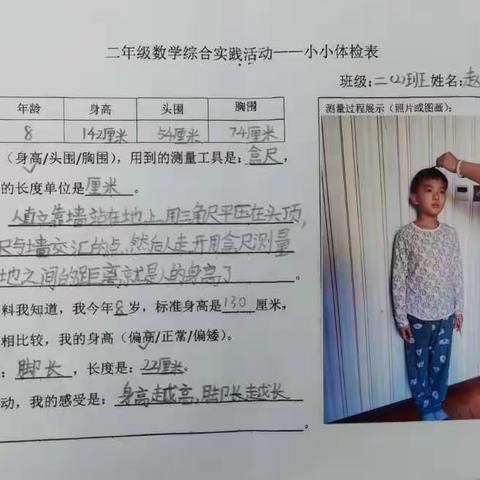 二年级数学综合实践活动——小小体检表
班级:二(2)班姓名:赵
年龄 身高 头围 胸围
8 142厘米 54厘米 74厘米
测量过程展示(照片或图画):
(身高/头围/胸围),用到的测量工具是:盒尺,
的长度单位是厘米。
人直立靠墙站在地上,用三角尺平压在头顶,
尺与墙交汇的点,然后人走开用盒尺测量
地之间的距离就是人的身高了。
料我知道,我今年8岁,标准身高是130厘米,
相比较,我的身高(偏高/正常/偏矮)。
:脚长,长度是:22厘米。
动,我的感受是:身高越高,脚长越长
。